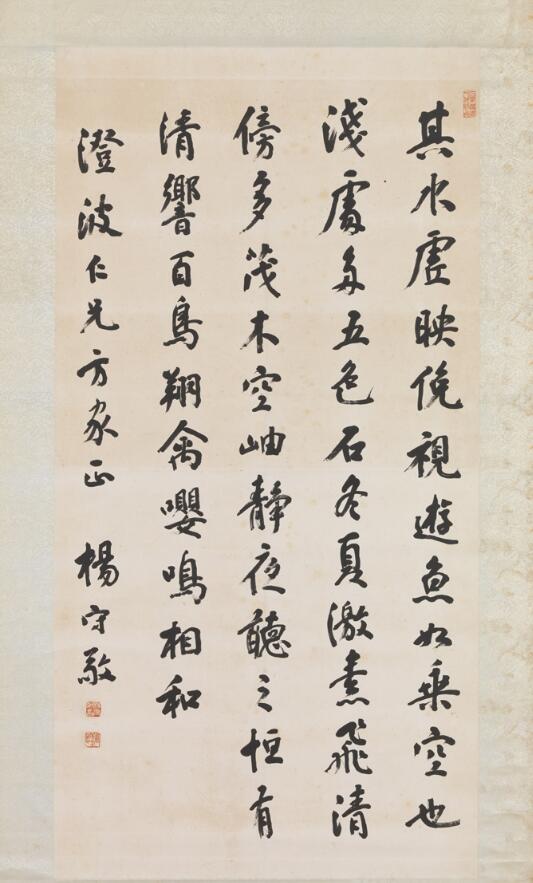 其水虛映俛視遊魚如乘空也
淺處多五色石冬夏激素飛清
傍多茂木空岫靜夜聽之恒有
清響百鳥翔禽嚶鳴相和
澄波仁兄方家正 楊守敬